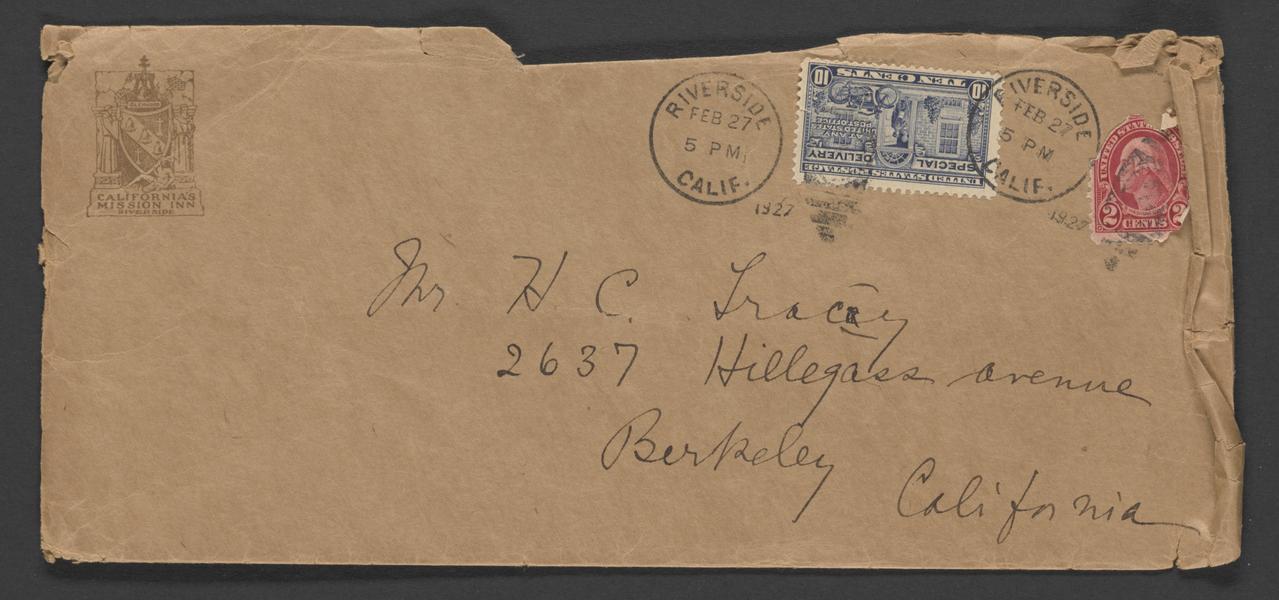 GLENWOOD
CALIFORNIA'S
MISSION INN
RIVERSIDE
RIVERSIDE
FEB 27
5 PM
CALIF.
1927
UNITED STATES POSTAGE
SPECIAL
DELIVERY
AT ANY
UNITED STATES
POST OFFICE
10 TEN CENTS 10
RIVERSIDE
FEB 27
5 PM
CALIF.
1927
UNITED STATES
2 CENTS 2
Mr. H C. Tracy
2637 Hillegass avenue
Berkeley
California